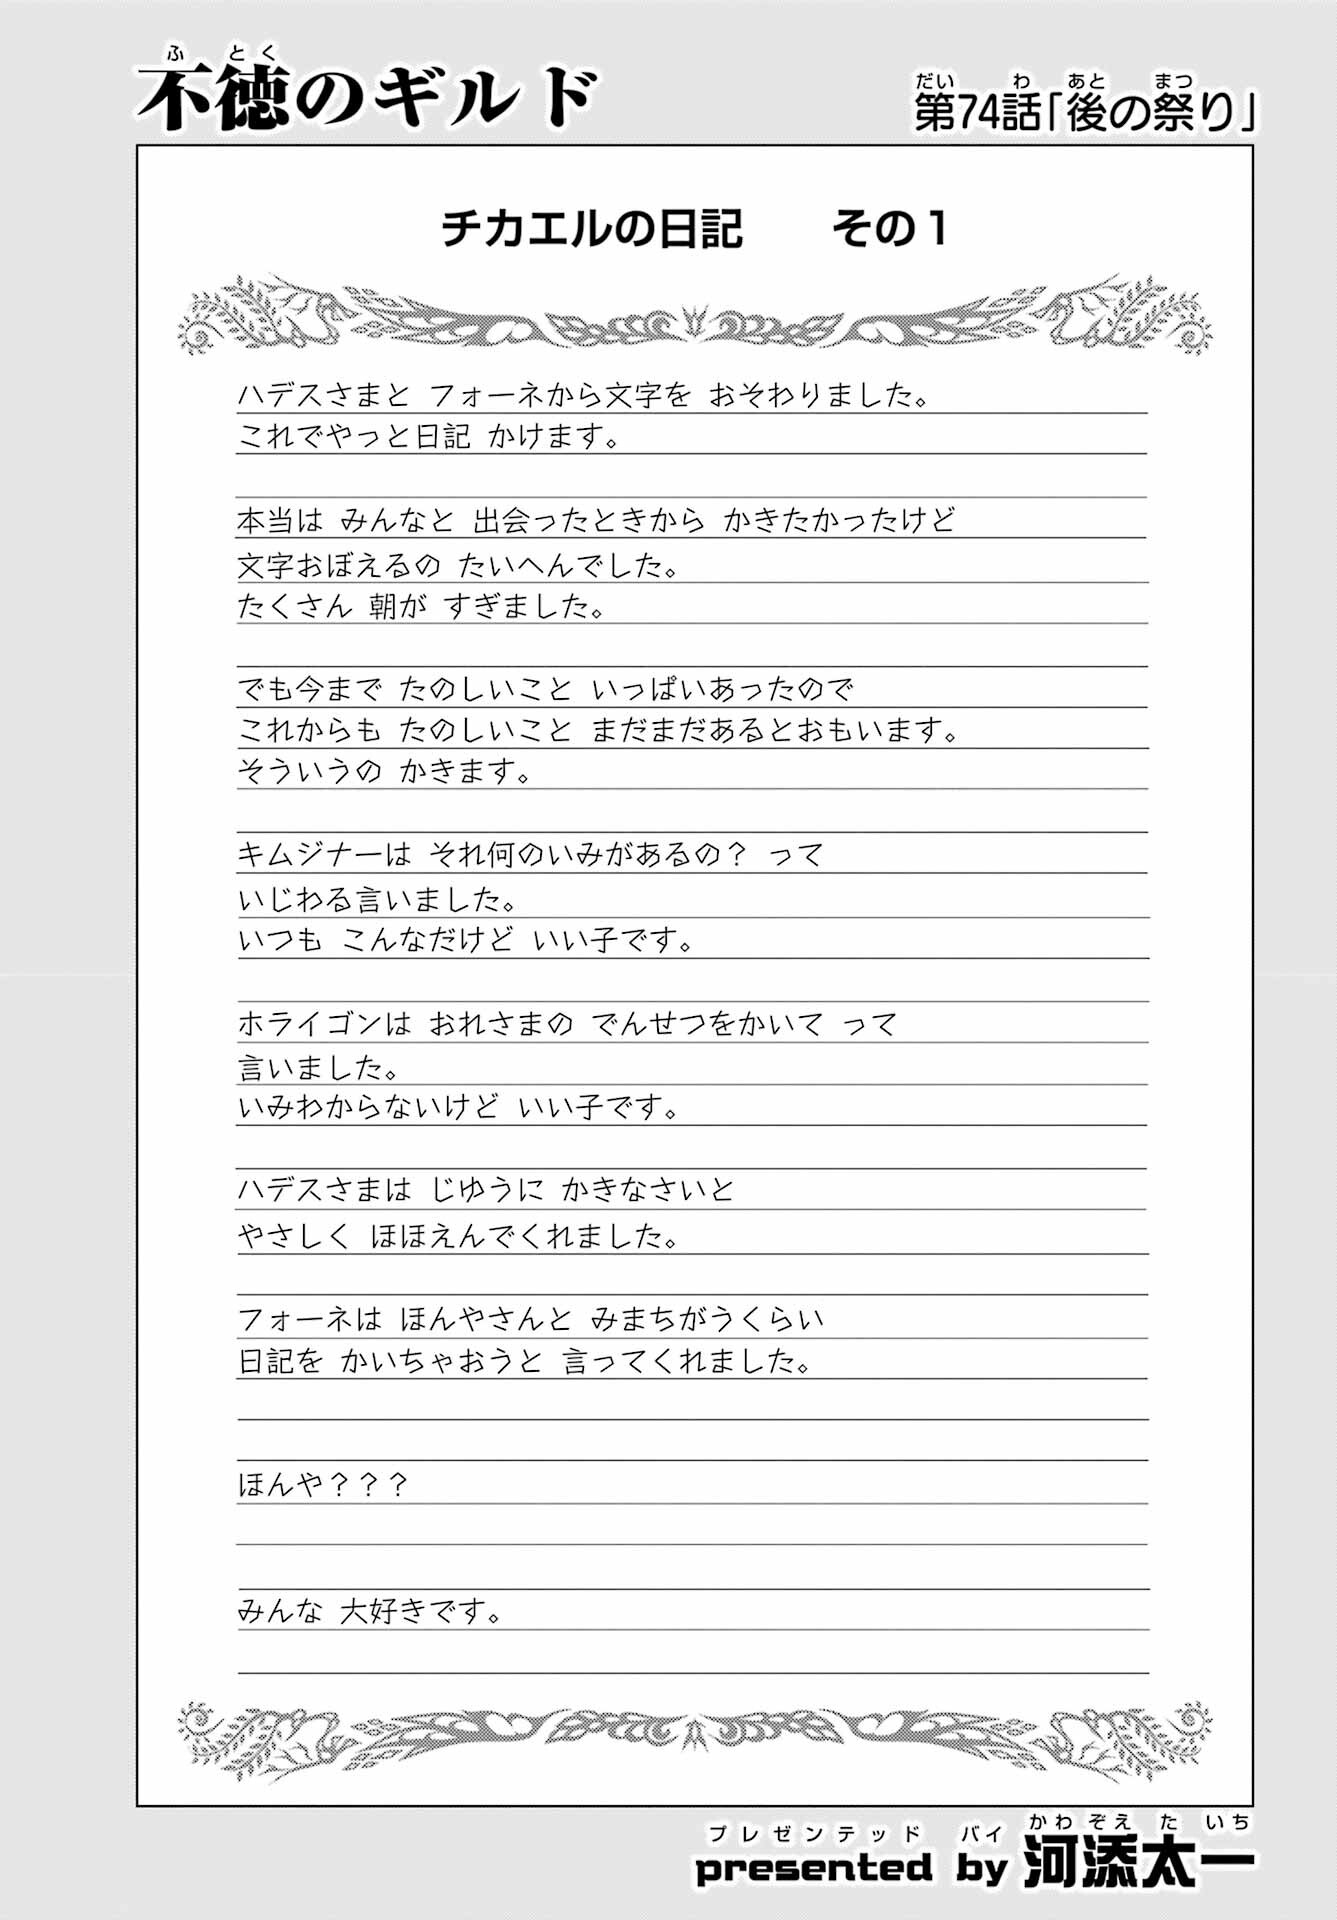 ふとく
不徳のギルド
だい わ あと まつ
第74話「後の祭り」
チカエルの日記 その1
ハデスさまと フォーネから文字を おそわりました。
これでやっと日記 かけます。
本当は みんなと 出会ったときから かきたかったけど
文字おぼえるの たいへんでした。
たくさん 朝が すぎました。
でも今まで たのしいこと いっぱいあったので
これからも たのしいこと まだまだあるとおもいます。
そういうの かきます。
キムジナーは それ何のいみがあるの? って
いじわる言いました。
いつも こんなだけど いい子です。
ホライゴンは おれさまの でんせつをかいて って
言いました。
いみわからないけど いい子です。
ハデスさまは じゆうに かきなさいと
やさしく ほほえんでくれました。
フォーネは ほんやさんと みまちがうくらい
日記を かいちゃおうと 言ってくれました。
ほんや???
みんな 大好きです。
プレゼンテッド バイ かわぞえ た いち
presented by 河添太一